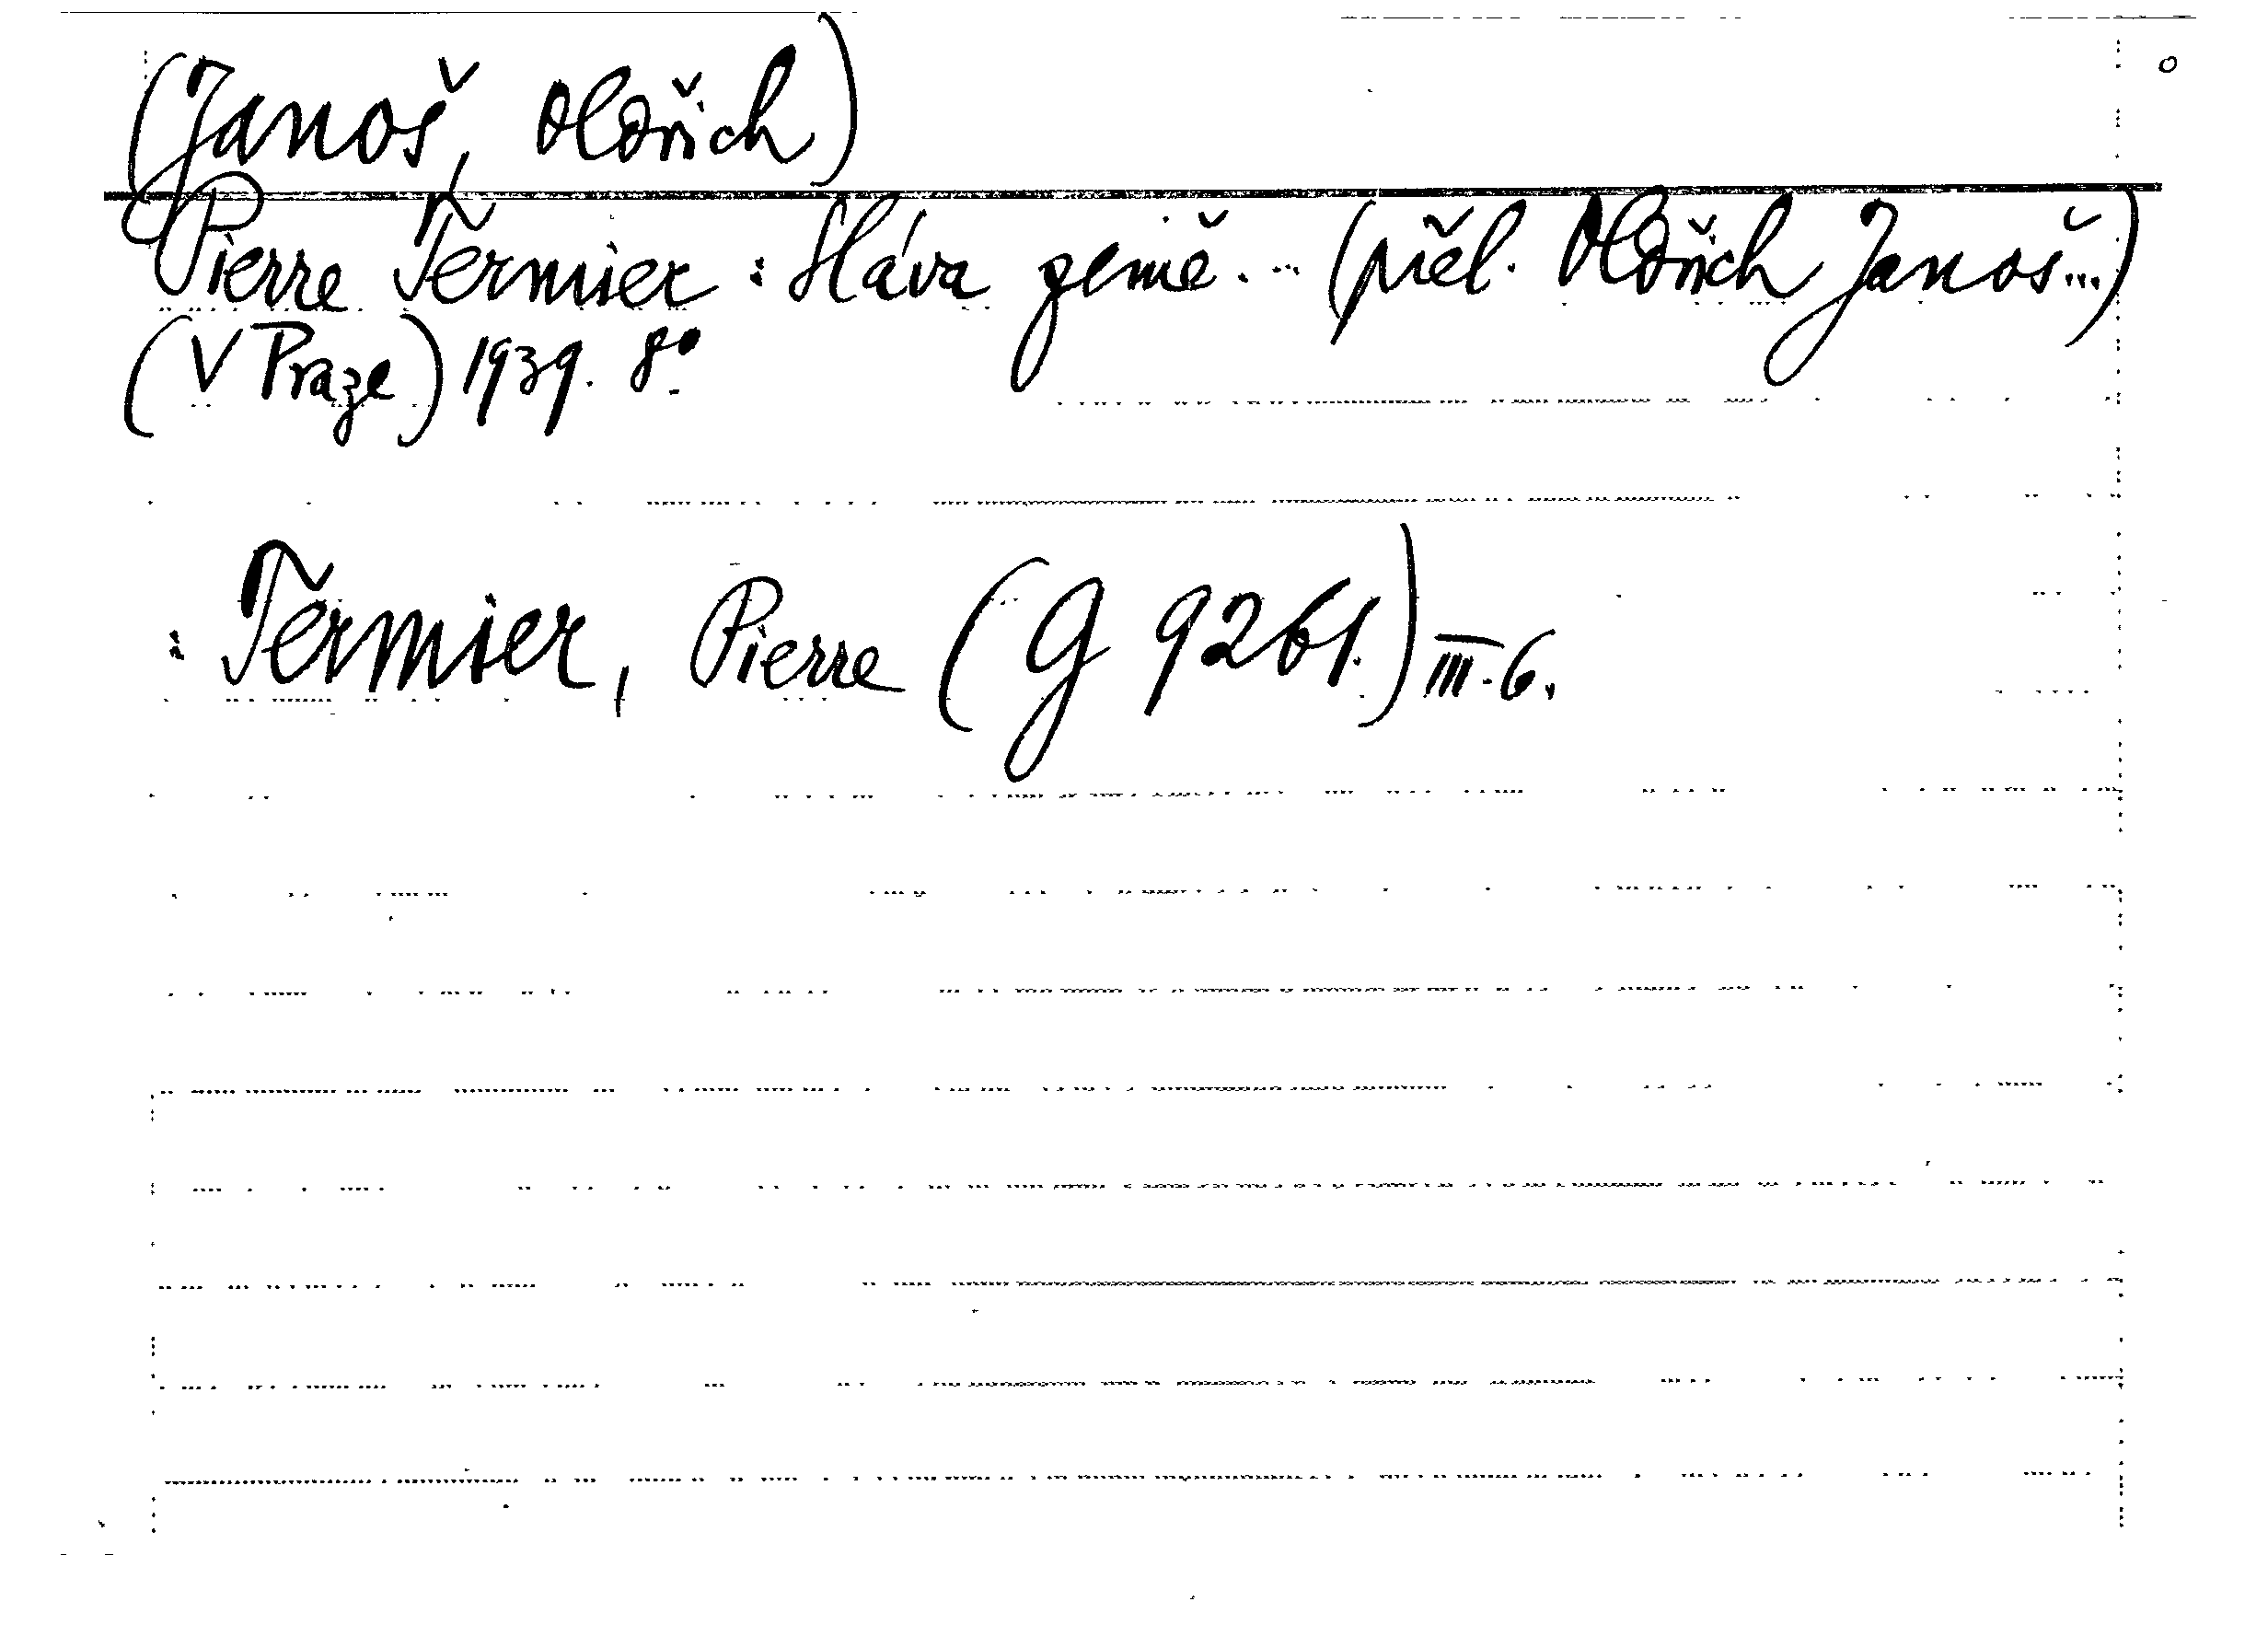 (Janoš, Oldřich)
Pierre Termier: Sláva země... (přel. Oldřich Janoš...)
(V Praze) 1939. 8°.
: Termier, Pierre (G 9261.) III. 6.